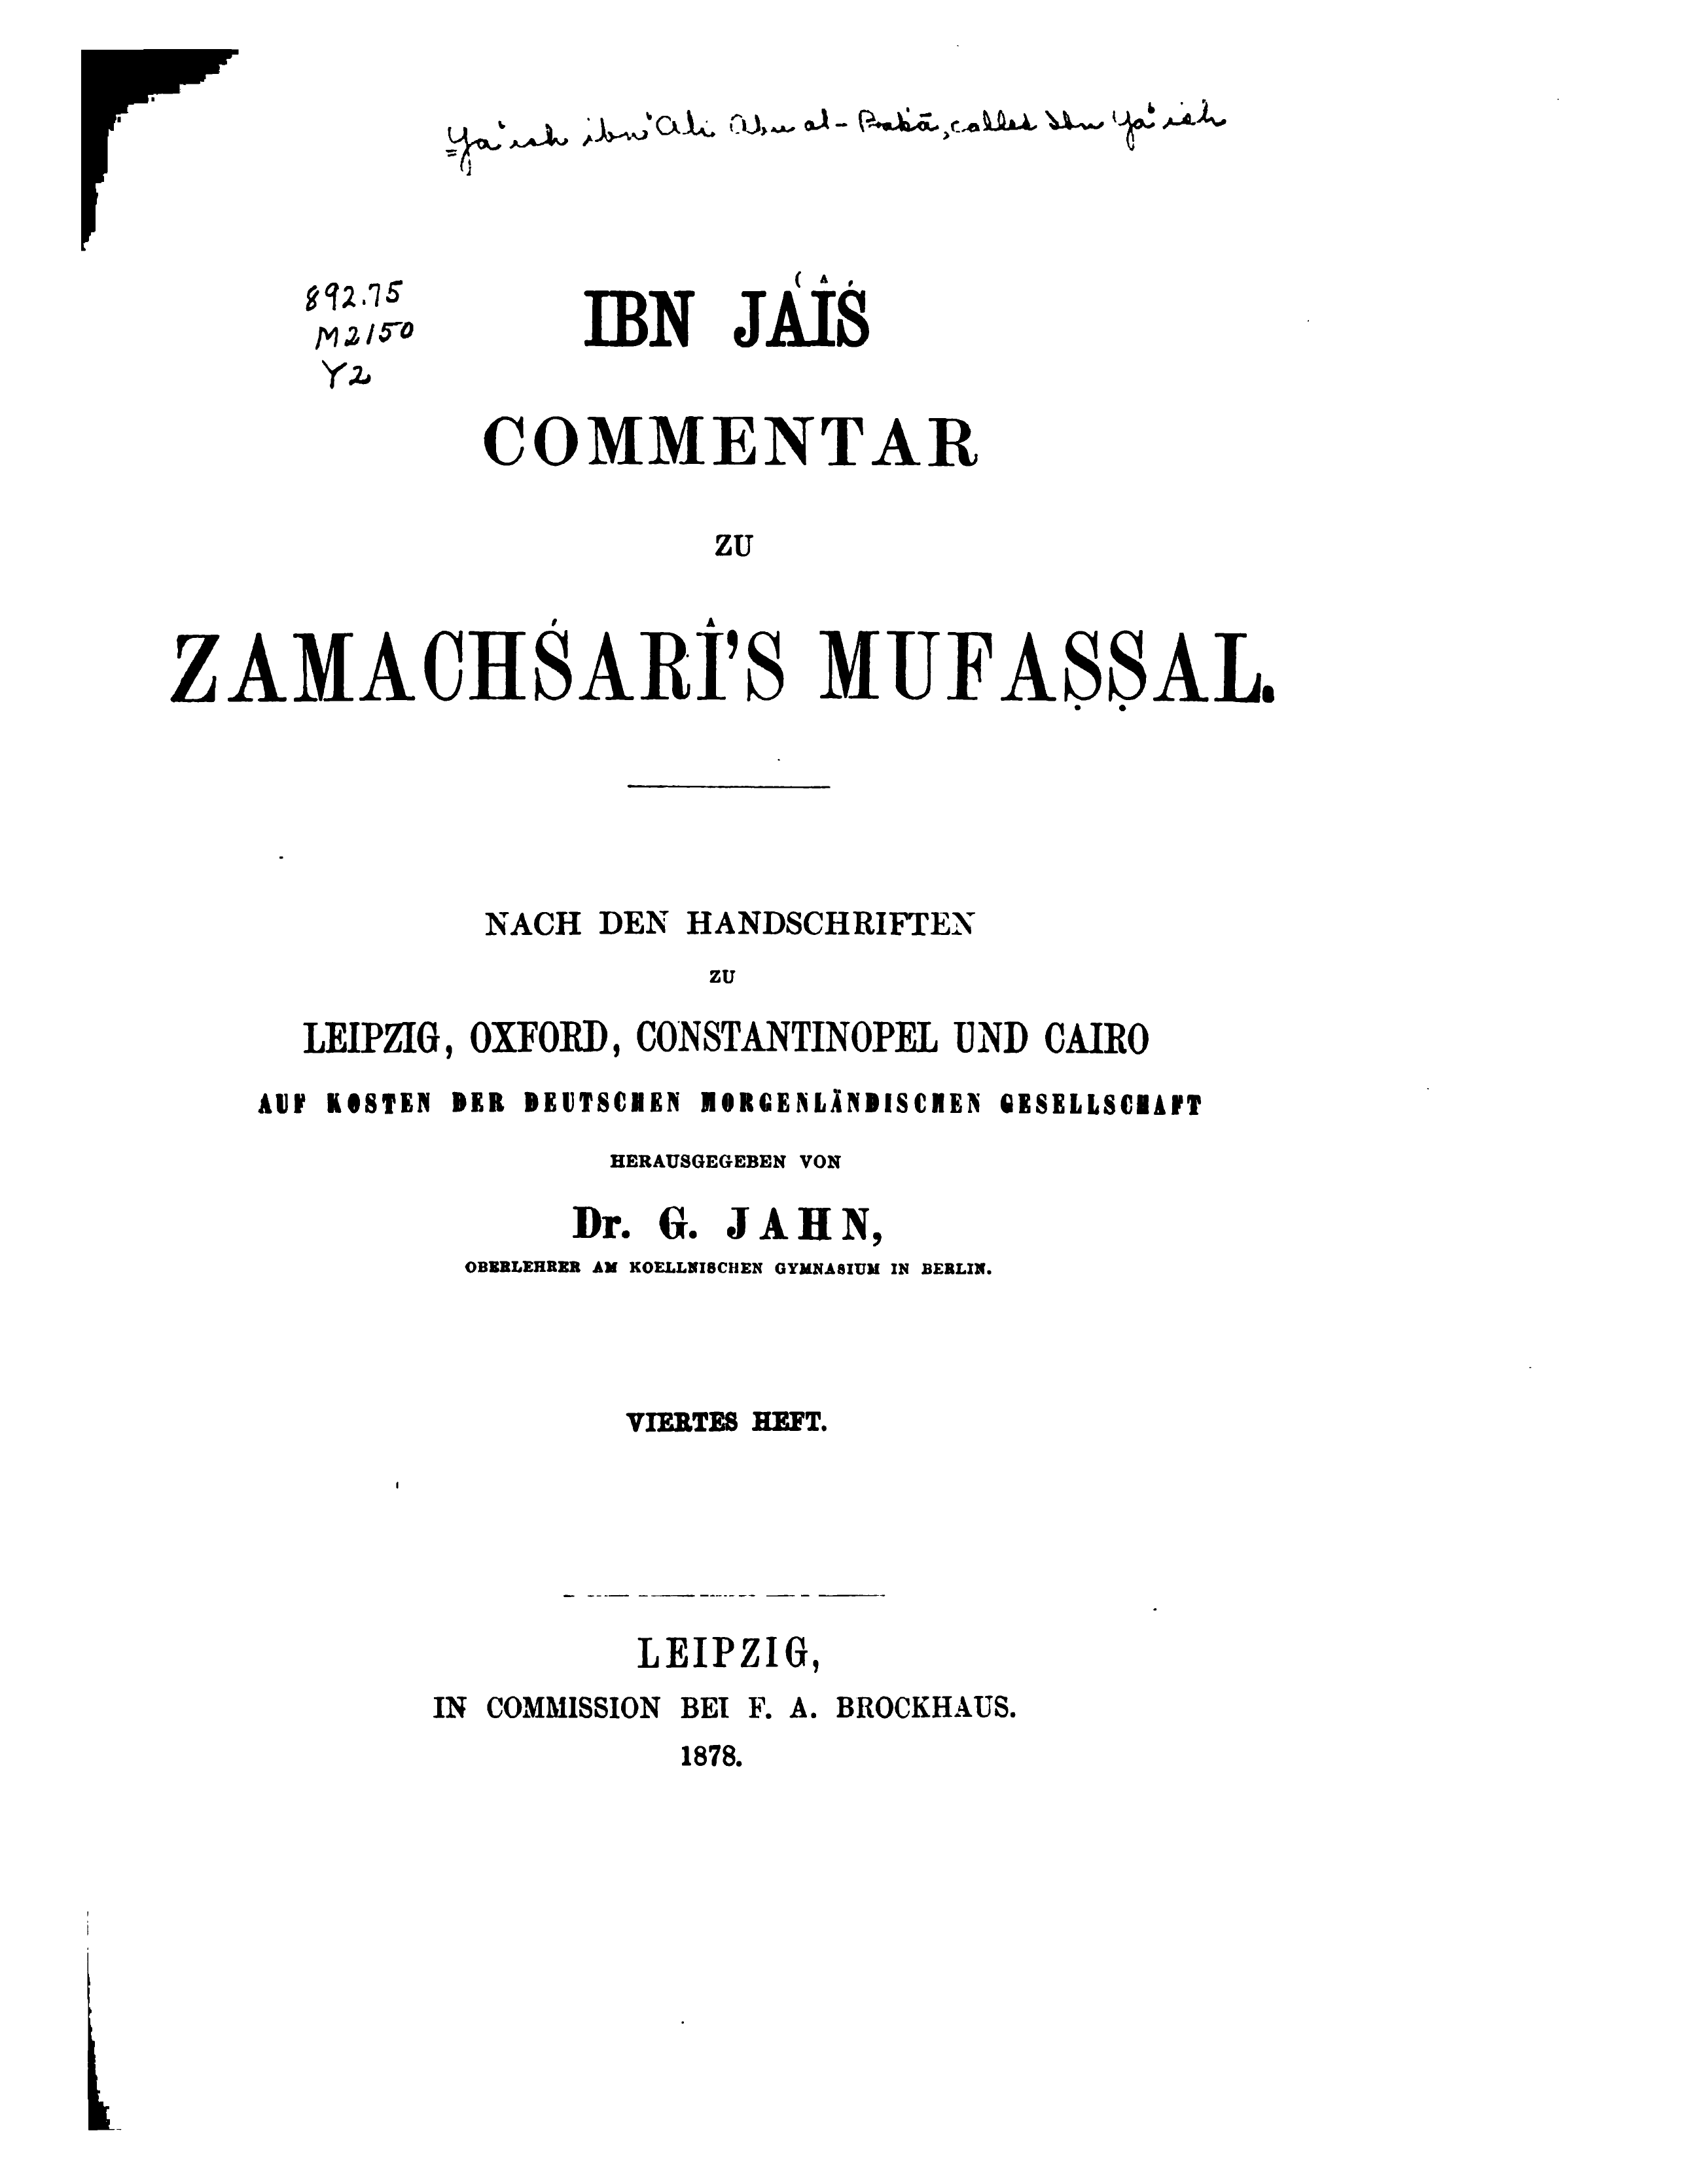 Ya'ish ibn 'Ali Abu al-Bakā, called Ibn Ya'ish
892.75
M2150
Y2
IBN JAʿÎŚ
COMMENTAR
ZU
ZAMACHŚARÎ'S MUFAṢṢAL.
NACH DEN HANDSCHRIFTEN
ZU
LEIPZIG, OXFORD, CONSTANTINOPEL UND CAIRO
AUF KOSTEN DER DEUTSCHEN MORGENLÄNDISCHEN GESELLSCHAFT
HERAUSGEGEBEN VON
Dr. G. JAHN,
OBERLEHRER AM KOELLNISCHEN GYMNASIUM IN BERLIN.
VIERTES HEFT.
LEIPZIG,
IN COMMISSION BEI F. A. BROCKHAUS.
1878.